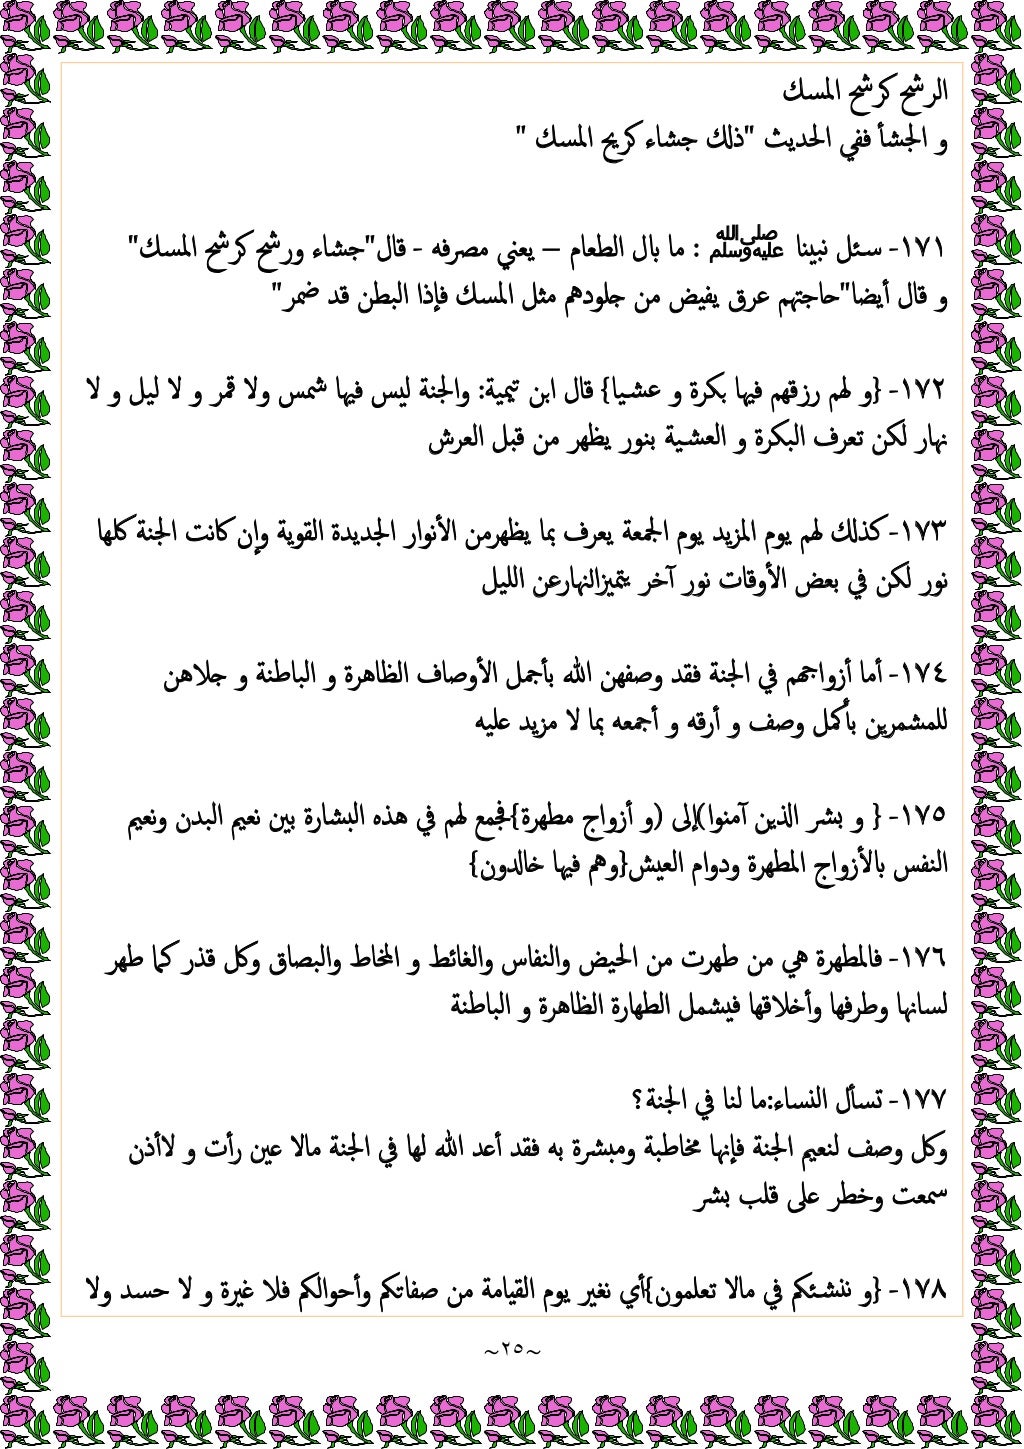 الرشح كرشح المسك
و الجشأ ففي الحديث "ذلك جشاء كريح المسك "
١٧١- سئل نبينا ﷺ : ما بال الطعام – يعني مصرفه - قال"جشاء ورشح كرشح المسك"
و قال أيضا"حاجتهم عرق يفيض من جلودهم مثل المسك فإذا البطن قد ضمر"
١٧٢- {و لهم رزقهم فيها بكرة و عشيا} قال ابن تيمية: والجنة ليس فيها شمس ولا قمر و لا ليل و لا
نهار لكن تعرف البكرة و العشية بنور يظهر من قبل العرش
١٧٣- كذلك لهم يوم المزيد يوم الجمعة يعرف بما يظهرمن الأنوار الجديدة القوية وإن كانت الجنة كلها
نور لكن في بعض الأوقات نور آخر يتميزالنهارعن الليل
١٧٤- أما أزواجهم في الجنة فقد وصفهن الله بأجمل الأوصاف الظاهرة و الباطنة و جلاهن
للمشمرين بأكمل وصف و أرقه و أجمعه بما لا مزيد عليه
١٧٥- { و بشر الذين آمنوا)إلى (و أزواج مطهرة}فجمع لهم في هذه البشارة بين نعيم البدن ونعيم
النفس بالأزواج المطهرة ودوام العيش{وهم فيها خالدون}
١٧٦- فالمطهرة هي من طهرت من الحيض والنفاس والغائط و المخاط والبصاق وكل قذر كما طهر
لسانها وطرفها وأخلاقها فيشمل الطهارة الظاهرة و الباطنة
١٧٧- تسأل النساء:ما لنا في الجنة؟
وكل وصف لنعيم الجنة فإنها مخاطبة ومبشرة به فقد أعد الله لها في الجنة مالا عين رأت و لاأذن
سمعت وخطر على قلب بشر
١٧٨- {و ننشئكم في مالا تعلمون}أي نغير يوم القيامة من صفاتكم وأحوالكم فلا غيرة و لا حسد ولا
~٢٥~